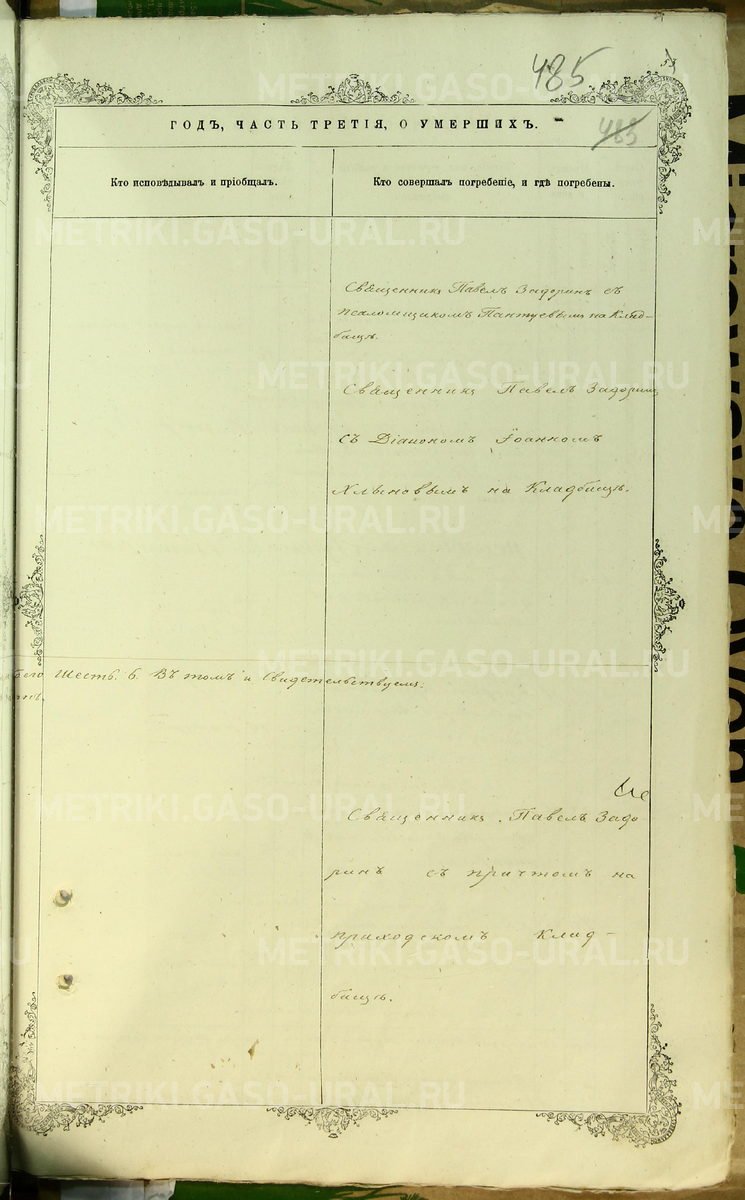 485
485
ГОДЪ, ЧАСТЬ ТРЕТІЯ, О УМЕРШИХЪ.
Кто исповѣдывалъ и пріобщалъ.
Кто совершалъ погребеніе, и гдѣ погребены.
Священникъ Павелъ Задоринъ съ
псаломщикомъ Пантуевымъ на Клад-
бищѣ.
Священникъ Павелъ Задоринъ
съ Діакономъ Іоанномъ
Хлыновымъ на Кладбищѣ.
Шесть. 6. Въ томъ и Свидетельствуемъ:
Священникъ Павелъ Задо-
ринъ съ причтомъ на
приходскомъ Клад-
бищѣ.
METRIKI.GASO-URAL.RU